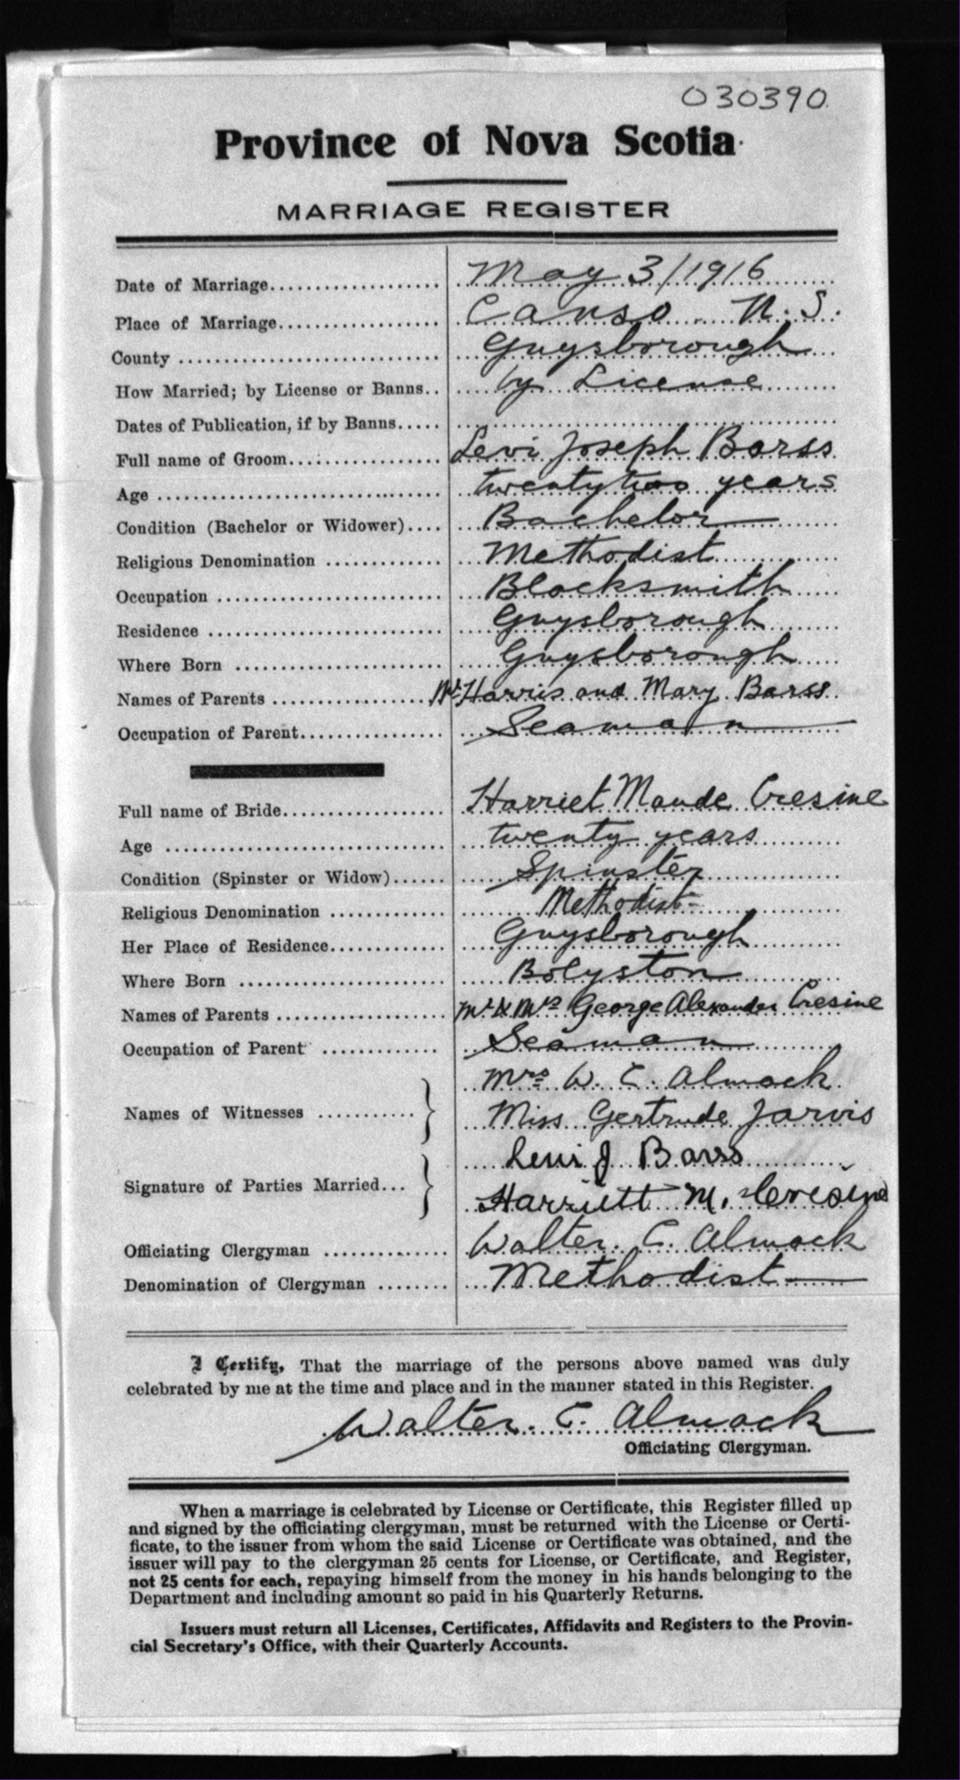 030390
Province of Nova Scotia
MARRIAGE REGISTER
Date of Marriage.................... May 3/1916
Place of Marriage................... Canso N.S.
County ............................. Guysborough
How Married; by License or Banns.. by License
Dates of Publication, if by Banns.....
Full name of Groom.................. Levi Joseph Barss
Age ................................ twenty two years
Condition (Bachelor or Widower).... Bachelor
Religious Denomination ............. Methodist
Occupation ......................... Blacksmith
Residence .......................... Guysborough
Where Born ......................... Guysborough
Names of Parents ................... Harris and Mary Barss
Occupation of Parent................ Seaman
Full name of Bride.................. Harriet Maude Cresine
Age ................................ twenty years
Condition (Spinster or Widow)...... Spinster
Religious Denomination ............. Methodist
Her Place of Residence............. Guysborough
Where Born ......................... Bolyston
Names of Parents ................... Mr & Mrs George Alexander Cresine
Occupation of Parent ............... Seaman
Mrs W. C. Almack
Names of Witnesses ........... } Miss Gertrude Jarvis
Levi J Barss
Signature of Parties Married... } Harriett M. Cresine
Officiating Clergyman .............. Walter. C. Almack
Denomination of Clergyman ........ Methodist
I Certify, That the marriage of the persons above named was duly
celebrated by me at the time and place and in the manner stated in this Register.
Walter. C. Almack
Officiating Clergyman.
When a marriage is celebrated by License or Certificate, this Register filled up
and signed by the officiating clergyman, must be returned with the License or Certi-
ficate, to the issuer from whom the said License or Certificate was obtained, and the
issuer will pay to the clergyman 25 cents for License, or Certificate, and Register,
not 25 cents for each, repaying himself from the money in his hands belonging to the
Department and including amount so paid in his Quarterly Returns.
Issuers must return all Licenses, Certificates, Affidavits and Registers to the Provin-
cial Secretary's Office, with their Quarterly Accounts.